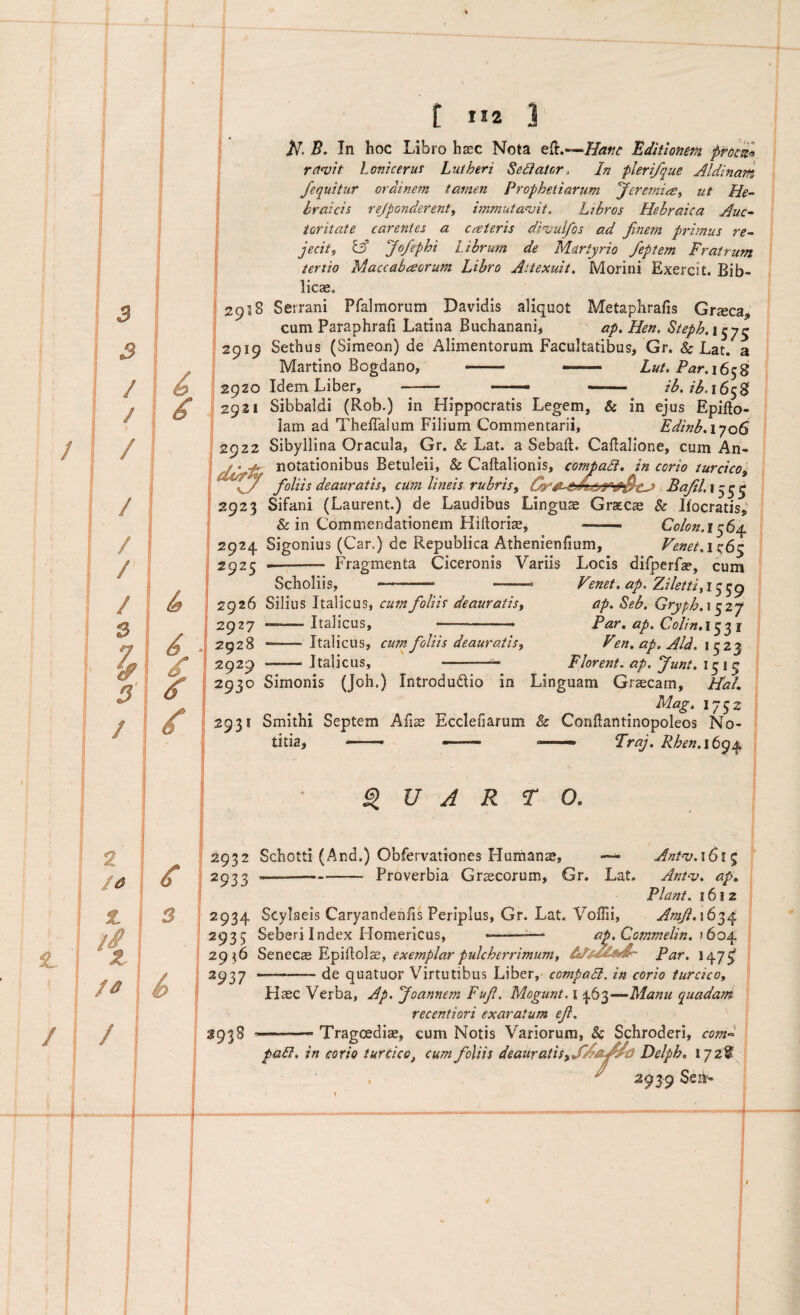 [ 112 ]
N. B. In hoc Libro hæc Nota eſt.—Hanc Editionem procu-
ravit Lonicerus Lutheri Sectator. In plerisque Aldinam
ſequitur ordinem tamen Prophetiarum Jeremiæ, ut He-
braicis reſponderent, immutavit. Libros Hebraica Auc-
toritate carentes a cæteris divulſos ad finem primus re-
jecit, & Joſephi Librum de Martyrio ſeptem Fratrum
tertio Maccabæorum Libro Attexuit. Morini Exercit. Bib-
licæ.
3 2918 Serrani Pſalmorum Davidis aliquot Metaphraſis Græca,
cum Paraphraſi Latina Buchanani, ap. Hen. Steph. 1575
3 2919 Sethus (Simeon) de Alimentorum Facultatibus, Gr. & Lat. a
Martino Bogdano, —— —— Lut. Par. 1658
/ 6 2920 Idem Liber, —— —— —— ib. ib. 1658
/ 6 2921 Sibbaldi (Rob.) in Hippocratis Legem, & in ejus Epiſto-
lam ad Theſſalum Filium Commentarii, Edinb. 1706
1 / 2922 Sibyllina Oracula, Gr. & Lat. a Sebaſt. Caſtalione, cum An-
notationibus Betuleii, & Caſtalionis, compact. in corio turcico,
foliis deauratis, cum lineis rubris, Baſil. 1555
/ 2923 Sifani (Laurent.) de Laudibus Linguæ Græcæ & Iſocratis,
& in Commendationem Hiſtoriæ, —— Colon. 1564
/ 2924 Sigonius (Car.) de Republica Athenienſium, Venet. 1565
/ 2925 ——— Fragmenta Ciceronis Variis Locis diſperſæ, cum
Scholiis, —— —— Venet. ap. Ziletti, 1559
/ 6 2926 Silius Italicus, cum foliis deauratis, ap. Seb. Gryph. 1527
3 2927 —— Italicus, ——— Par. ap. Colin. 1531
7 6 2928 —— Italicus, cum foliis deauratis, Ven. ap. Ald. 1523
2929 —— Italicus, ——— Florent. ap. Junt. 1515
3 6 2930 Simonis (Joh.) Introductio in Linguam Græcam, Hal.
Mag. 1752
/ 6 2931 Smithi Septem Aſiæ Eccleſiarum & Conſtantinopoleos No-
titia, —— —— —— Traj. Rhen. 1694
QUARTO.
2 2932 Schotti (And.) Obſervationes Humanæ, — Antv. 1615
10 6 2933 ——— Proverbia Græcorum, Gr. Lat. Antv. ap.
Plant. 1612
2 3 2934 Scylacis Caryandenſis Periplus, Gr. Lat. Voſſii, Amſt. 1634
18 2935 Seberi Index Homericus, ——— ap. Commelin. 1604
2 2 2936 Senecæ Epiſtolæ, exemplar pulcherrimum, Par. 1475
10 6 2937 ——— de quatuor Virtutibus Liber, compact. in corio turcico,
Hæc Verba, Ap. Joannem Fuſt. Mogunt. 1463—Manu quadam
recentiori exaratum eſt.
/ / 2938 ——— Tragœdiæ, cum Notis Variorum, & Schroderi, com-
pact. in corio turcico, cum foliis deauratis, Delph. 1728
2939 Sen-